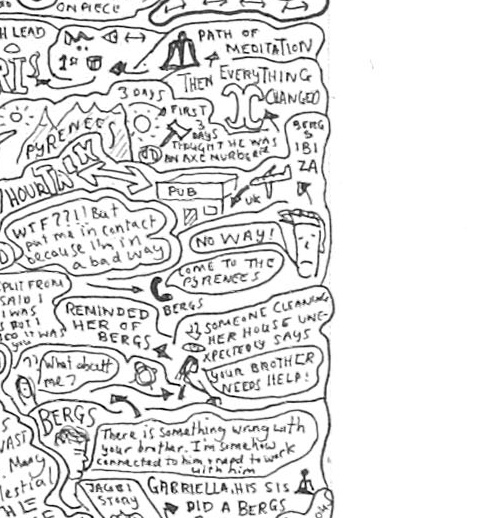 ON PIECE
H LEAD
PATH OF
MEDITATION
1st
RTS
THEN EVERYTHING
CHANGED
3 DAYS
FIRST
3
DAYS
THOUGHT HE WAS
AN AXE MURDERER
PYRENEES
BERG
S
IBI
ZA
HOUR TALK
PUB
UK
WTF??!! But
put me in contact
because I'm in
a bad way
NO WAY!
COME TO THE
PYRENEES
BERGS
SPLIT FROM
SAID I
I WAS
BUT I
IT WAS
you
REMINDED
HER OF
BERGS
SOMEONE CLEANING
HER HOUSE UNE-
XPECTEDLY SAYS
YOUR BROTHER
NEEDS HELP!
??
What about
me?
BERGS
There is something wrong with
your brother. I'm somehow
connected to him & need to work
with him
VAST
Many
lestial
JAGGI
STORY
GABRIELLA, HIS SIS
DID A BERGS